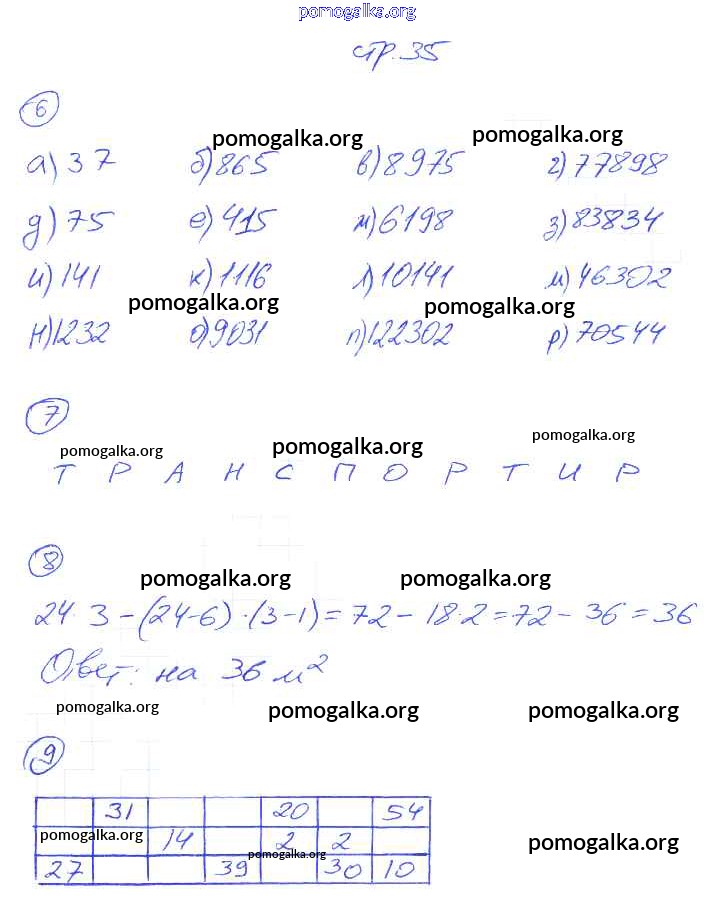 pomogalka.org
стр. 35
6
pomogalka.org pomogalka.org
а) 37 б) 865 в) 8975 г) 77898
д) 75 е) 415 ж) 6198 з) 83834
и) 141 к) 1116 л) 10141 м) 46302
pomogalka.org pomogalka.org
н) 1232 о) 9031 п) 122302 р) 70544
7
pomogalka.org pomogalka.org pomogalka.org
Т Р А Н С П О Р Т И Р
8
pomogalka.org pomogalka.org
24·3-(24-6)·(3-1)=72-18·2=72-36=36
Ответ: на 36 м²
pomogalka.org pomogalka.org pomogalka.org
9
31 20 54
pomogalka.org 14 2 2 pomogalka.org
27 39 pomogalka.org 30 10